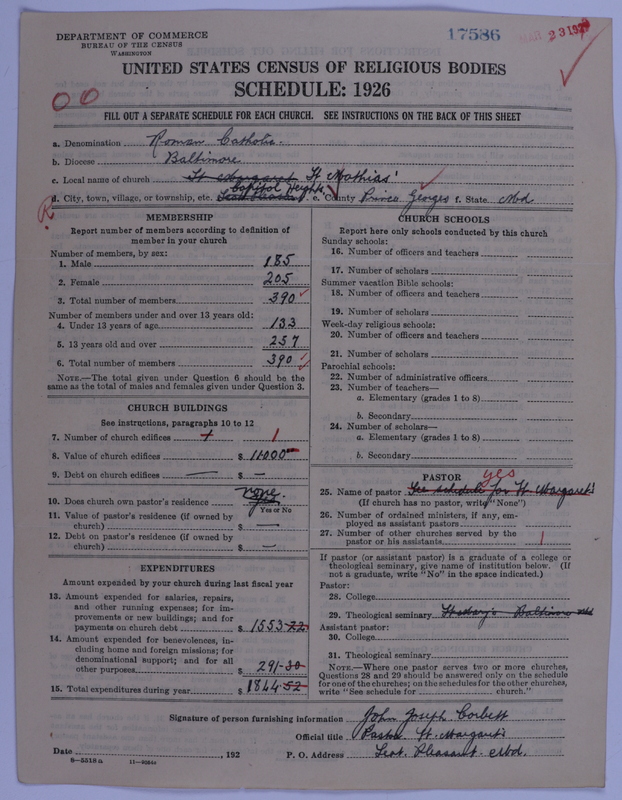 DEPARTMENT OF COMMERCE
BUREAU OF THE CENSUS
WASHINGTON
17586
MAR 23 192
UNITED STATES CENSUS OF RELIGIOUS BODIES
SCHEDULE: 1926
00
FILL OUT A SEPARATE SCHEDULE FOR EACH CHURCH. SEE INSTRUCTIONS ON THE BACK OF THIS SHEET
a. Denomination Roman Catholic
b. Diocese Baltimore
c. Local name of church St Margaret St Mathias'
d. City, town, village, or township, etc. Seat Pleasant Capitol Heights e. County Prince Georges f. State Md
R
MEMBERSHIP
Report number of members according to definition of
member in your church
Number of members, by sex:
1. Male 185
2. Female 205
3. Total number of members 390
Number of members under and over 13 years old:
4. Under 13 years of age 133
5. 13 years old and over 257
6. Total number of members 390
NOTE.—The total given under Question 6 should be the
same as the total of males and females given under Question 3.
CHURCH BUILDINGS
See instructions, paragraphs 10 to 12
7. Number of church edifices 1
8. Value of church edifices $ 11000
9. Debt on church edifices — $ —
10. Does church own pastor's residence none.
Yes or No
11. Value of pastor's residence (if owned by
church) $ —
12. Debt on pastor's residence (if owned by
church) $ —
EXPENDITURES
Amount expended by your church during last fiscal year
13. Amount expended for salaries, repairs,
and other running expenses; for im-
provements or new buildings; and for
payments on church debt $ 1553-22
14. Amount expended for benevolences, in-
cluding home and foreign missions; for
denominational support; and for all
other purposes $ 291-30
15. Total expenditures during year $ 1844-52
CHURCH SCHOOLS
Report here only schools conducted by this church
Sunday schools:
16. Number of officers and teachers
17. Number of scholars
Summer vacation Bible schools:
18. Number of officers and teachers
19. Number of scholars
Week-day religious schools:
20. Number of officers and teachers
21. Number of scholars
Parochial schools:
22. Number of administrative officers
23. Number of teachers—
a. Elementary (grades 1 to 8)
b. Secondary
24. Number of scholars—
a. Elementary (grades 1 to 8)
b. Secondary
PASTOR yes
25. Name of pastor See schedule for St. Margaret's
(If church has no pastor, write "None")
26. Number of ordained ministers, if any, em-
ployed as assistant pastors
27. Number of other churches served by the
pastor or his assistants 1
If pastor (or assistant pastor) is a graduate of a college or
theological seminary, give name of institution below. (If
not a graduate, write "No" in the space indicated.)
Pastor:
28. College
29. Theological seminary St Mary's Baltimore Md
Assistant pastor:
30. College
31. Theological seminary
NOTE.—Where one pastor serves two or more churches,
Questions 28 and 29 should be answered only on the schedule
for one of the churches; on the schedules for the other churches,
write "See schedule for church."
Signature of person furnishing information John Joseph Corbett
Official title Pastor St. Margaret's
Date , 192 P. O. Address Seat Pleasant Md.
8-5518a 11-9064a